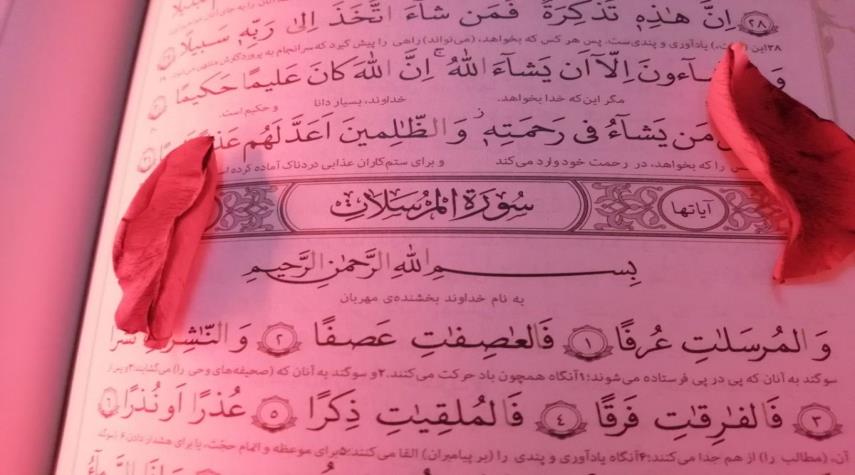 اِنَّ هٰذِهٖ تَذْكِرَةٌ فَمَن شَآءَ اتَّخَذَ اِلىٰ رَبِّهٖ سَبيلًا ٢٨
يادآورى و پندى ست. پس هر كس كه بخواهد، (مى‌تواند) راهى را پيش گيرد كه سرانجام به پروردگارش
اِلّآ اَن يَشآءَ اللهُ اِنَّ اللهَ كانَ عَليمًا حَكيمًا
مگر اين‌كه خدا بخواهد. خداوند، بسيار دانا و حكيم است.
مَن يَشآءُ فى رَحمَتِهٖ وَ الظّٰلِمينَ اَعَدَّ لَهُم
را كه بخواهد، در رحمت خود وارد مى‌كند و براى ستم‌كاران عذابى دردناک آماده كرده
آياتها
سُورَةُ المُرسَلات
بِسمِ اللهِ الرَّحمٰنِ الرَّحيمِ
به نام خداوند بخشنده‌ى مهربان
وَ المُرسَلٰتِ عُرفًا ١ فَالعٰصِفٰتِ عَصفًا ٢ وَ النّٰشِرٰتِ
سوگند به آنان كه پى در پى فرستاده مى‌شوند؛١ آنگاه همچون باد حركت مى‌كنند.٢ و سوگند به آنان كه (صحيفه‌هاى وحى را) مى‌گشايند؛٣ و پس از
٣ فَالفٰرِقٰتِ فَرقًا ٤ فَالمُلقِيٰتِ ذِكرًا ٥ عُذرًا اَو نُذرًا ٦
آن، (مطالب را) از هم جدا مى‌كنند؛۴ آنگاه يادآورى و پندى را (بر پيامبران) القا مى‌كنند؛۵ براى موعظه و اتمام حجّت، يا براى هشدار دادن.۶